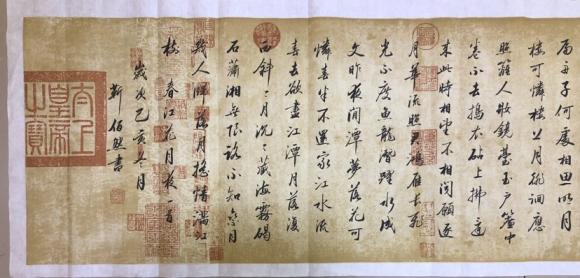 扁舟子何處相思明月
樓可憐樓上月徘徊應
照離人妝鏡臺玉戶簾中
卷不去搗衣砧上拂還
來此時相望不相聞願逐
月華流照君鴻雁長飛
光不度魚龍潛躍水成
文昨夜閒潭夢落花可
憐春半不還家江水流
春去欲盡江潭月落復
西斜々月沉々藏海霧碣
石瀟湘無限路不知乘月
幾人歸落月搖情滿江
樹 春江花月夜一首
歲次己亥冬月
靳 書
太上皇帝之寶